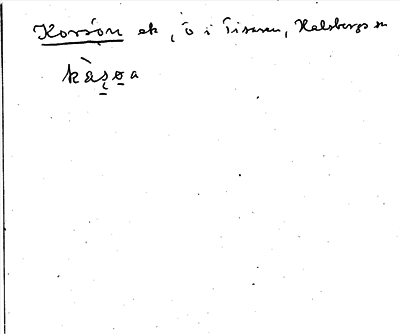 Korsön ek, ö i Tisaren, Halsbergs sn
kàs̱o̱a